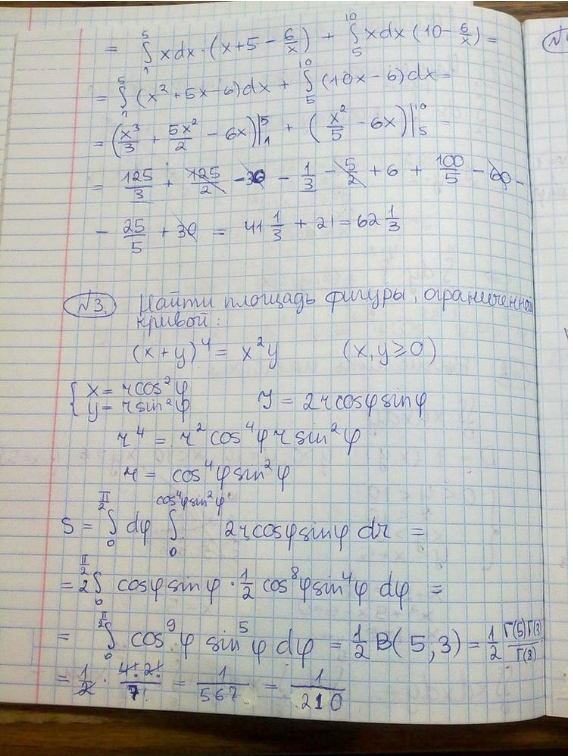 = ∫₁⁵ x dx · (x + 5 − 6/x) + ∫₅¹⁰ x dx (10 − 6/x) =
= ∫₁⁵ (x² + 5x − 6) dx + ∫₅¹⁰ (10x − 6) dx =
= (x³/3 + 5x²/2 − 6x)|₁⁵ + (x²/5 − 6x)|₅¹⁰ =
= 125/3 + 125/2 − 30 − 1/3 − 5/2 + 6 + 100/5 − 60 −
− 25/5 + 30 = 41 1/3 + 21 = 62 1/3
№3. Найти площадь фигуры, ограниченной
кривой:
(x + y)⁴ = x²y (x, y ≥ 0)
{ x = r cos²φ
y = r sin²φ J = 2r cosφ sinφ
r⁴ = r² cos⁴φ r sin²φ
r = cos⁴φ sin²φ
S = ∫₀^(π/2) dφ ∫₀^(cos⁴φ sin²φ) 2r cosφ sinφ dr =
= 2∫₀^(π/2) cosφ sinφ · 1/2 cos⁸φ sin⁴φ dφ =
= ∫₀^(π/2) cos⁹φ sin⁵φ dφ = 1/2 B(5, 3) = 1/2 Γ(5)Γ(3)/Γ(8)
= 1/2 · 4! · 2!/7! = 1/567 = 1/210